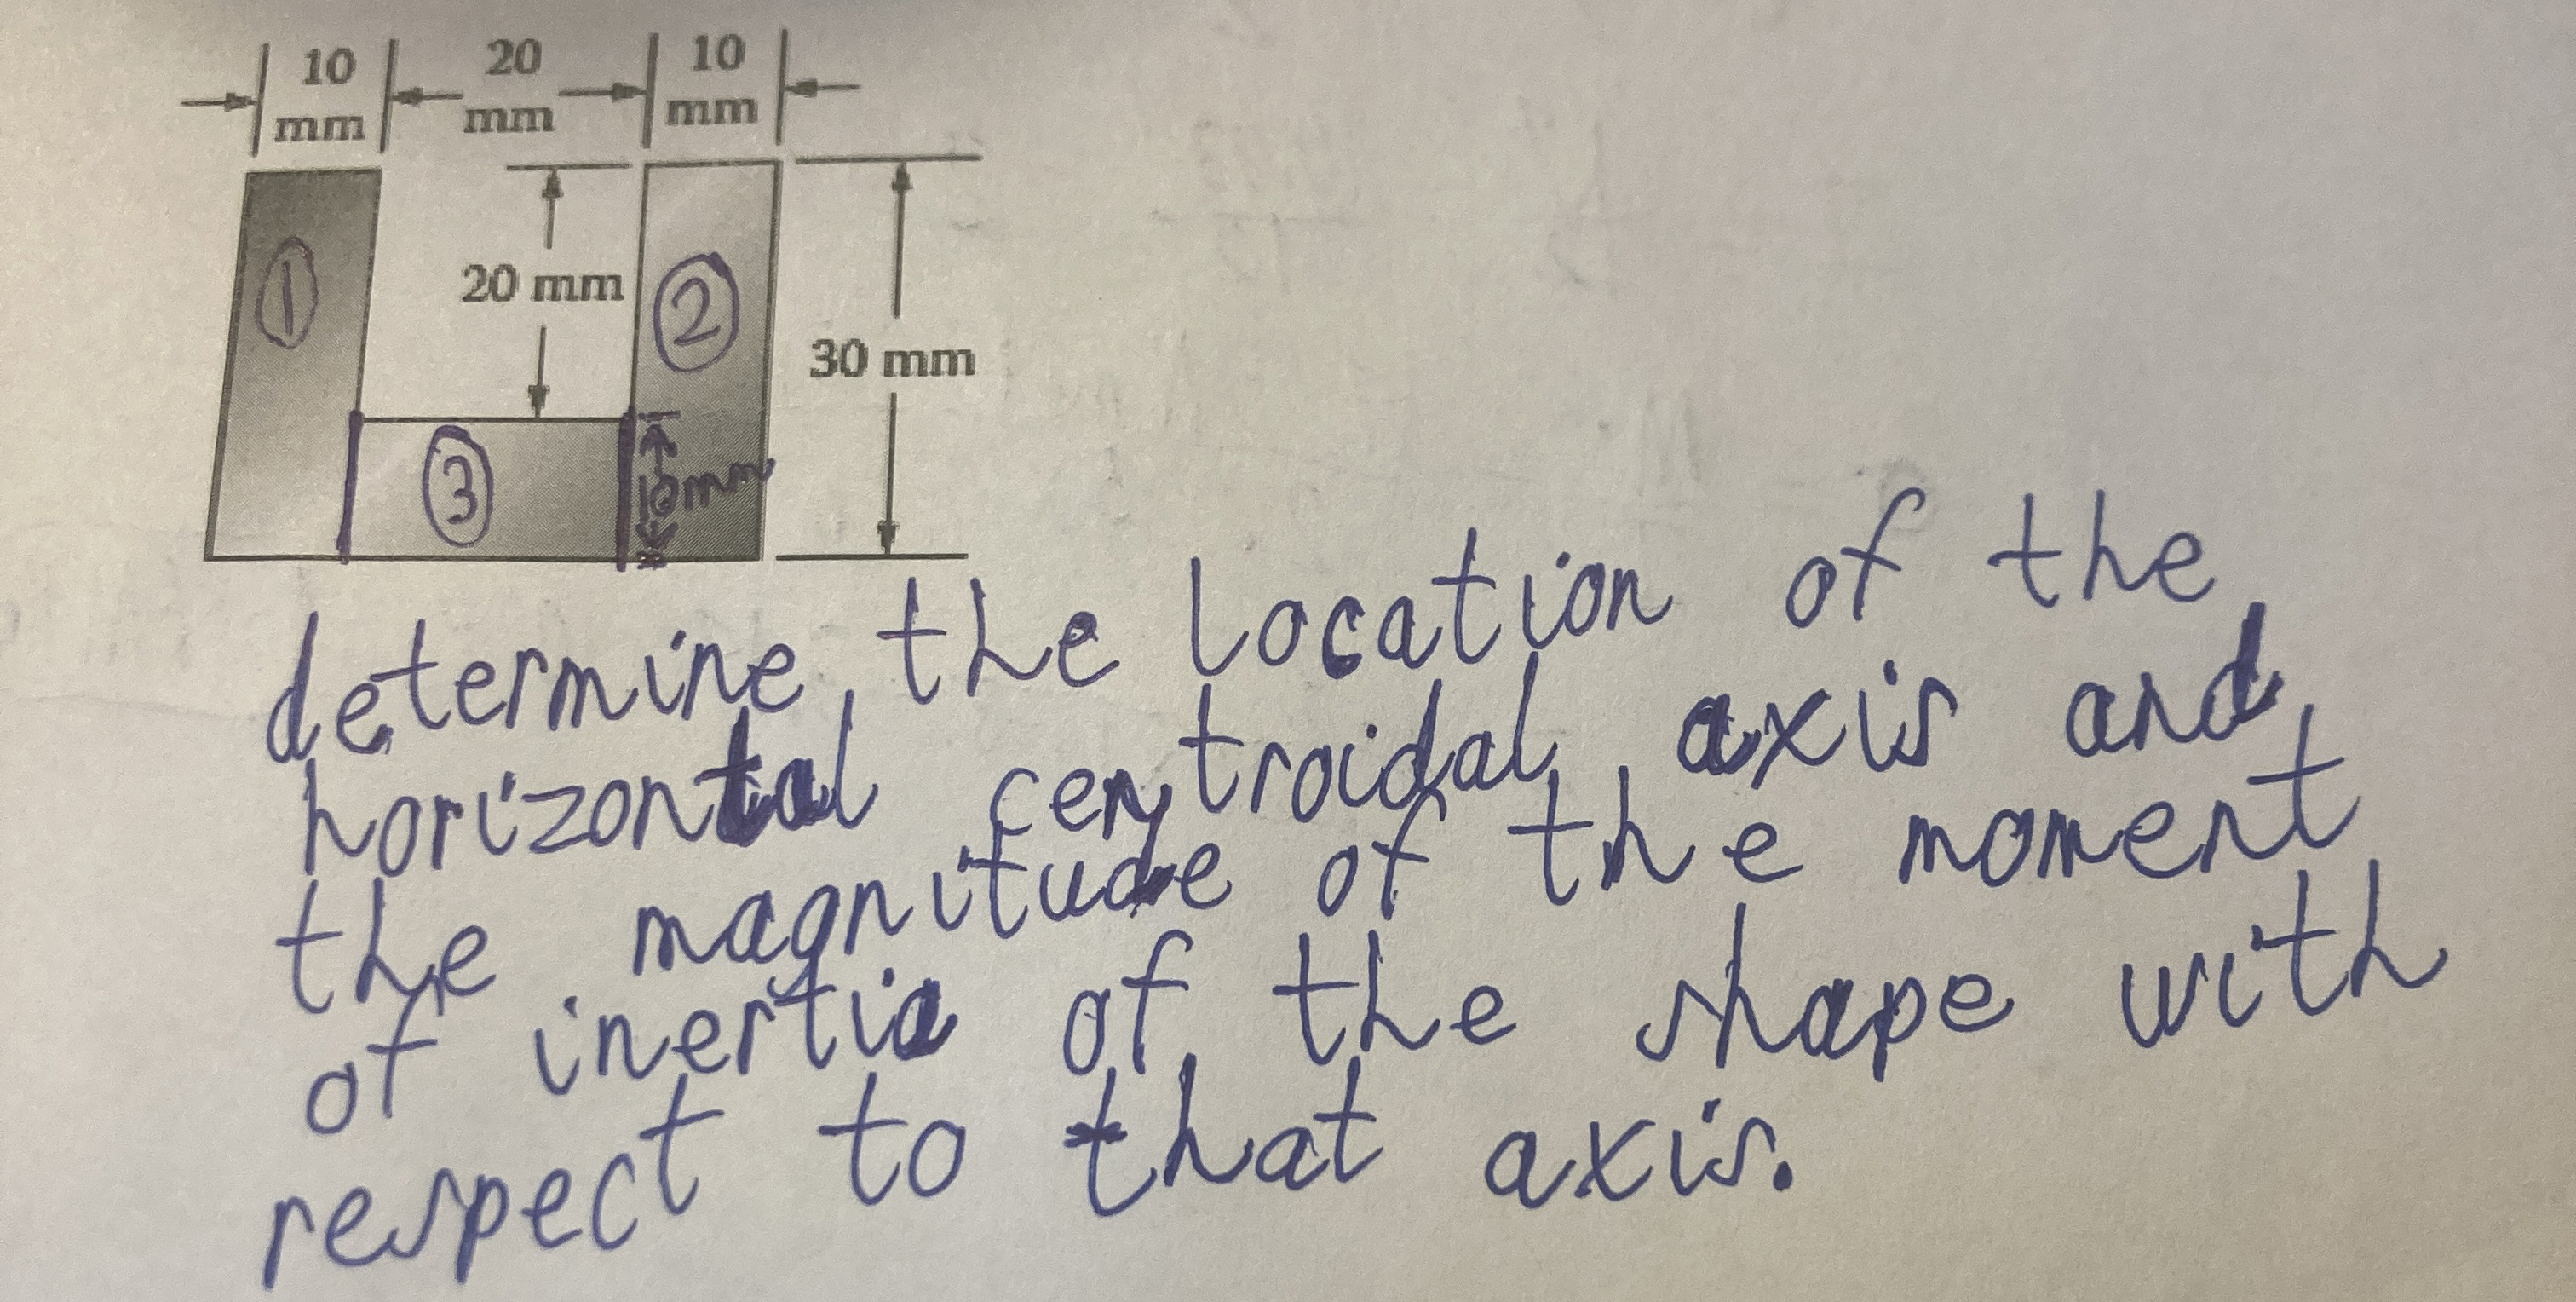 10 20 10
mm mm mm
① 20 mm ② 30 mm
③ 10mm
determine the location of the
horizontal centroidal axis and
the magnitude of the moment
of inertia of the shape with
respect to that axis.